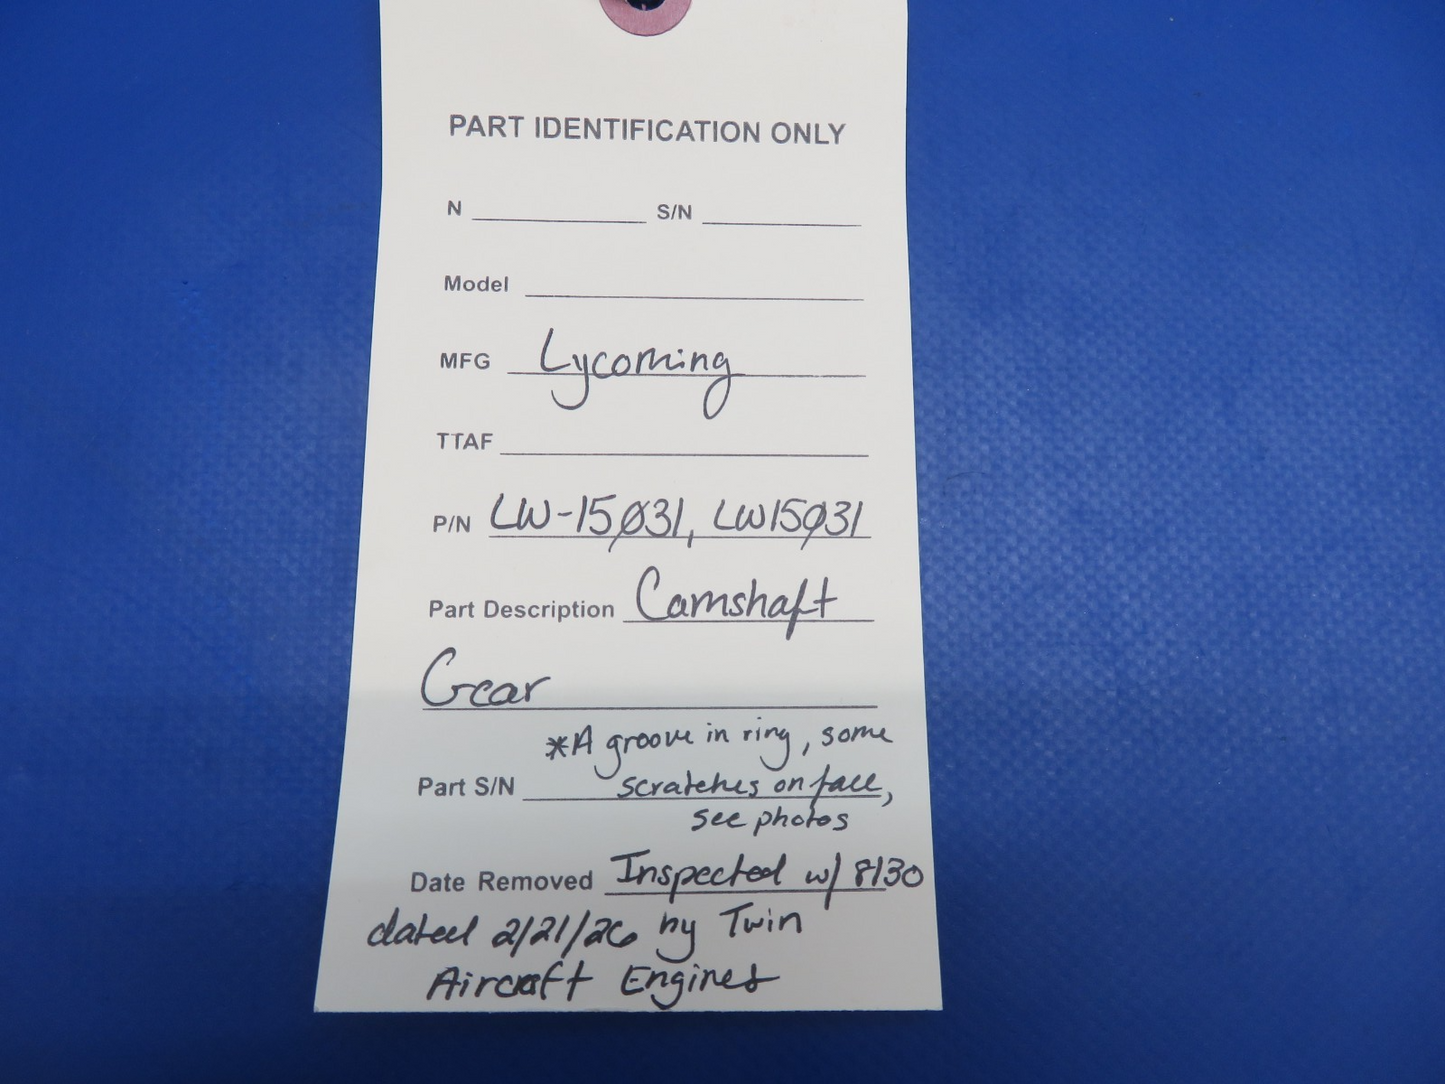 PART IDENTIFICATION ONLY
N S/N
Model
MFG Lycoming
TTAF
P/N LW-15031, LW15031
Part Description Camshaft
Gear
*A groove in ring, some
Part S/N scratches on face,
see photos
Date Removed Inspected w/ 8130
dated 2/21/26 by Twin
Aircraft Engines